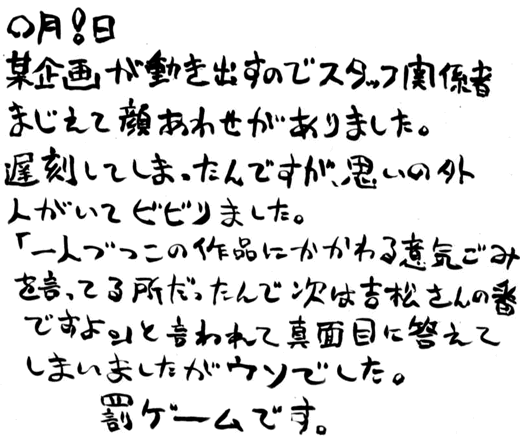 ○月!日
某企画が動き出すのでスタッフ関係者
まじえて顔あわせがありました。
遅刻してしまったんですが、思いの外
人がいてビビりました。
「一人づつこの作品にかかわる意気ごみ
を言ってる所だったんで次は吉松さんの番
ですよ」と言われて真面目に答えて
しまいましたがウソでした。
罰ゲームです。